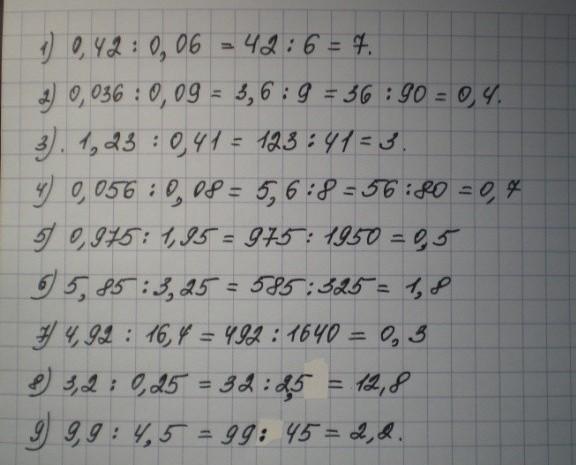 1) 0,42 : 0,06 = 42 : 6 = 7.
2) 0,036 : 0,09 = 3,6 : 9 = 36 : 90 = 0,4.
3). 1,23 : 0,41 = 123 : 41 = 3.
4) 0,056 : 0,08 = 5,6 : 8 = 56 : 80 = 0,7
5) 0,975 : 1,95 = 975 : 1950 = 0,5
6) 5,85 : 3,25 = 585 : 325 = 1,8
7) 4,92 : 16,4 = 492 : 1640 = 0,3
8) 3,2 : 0,25 = 32 : 2,5 = 12,8
9) 9,9 : 4,5 = 99 : 45 = 2,2.